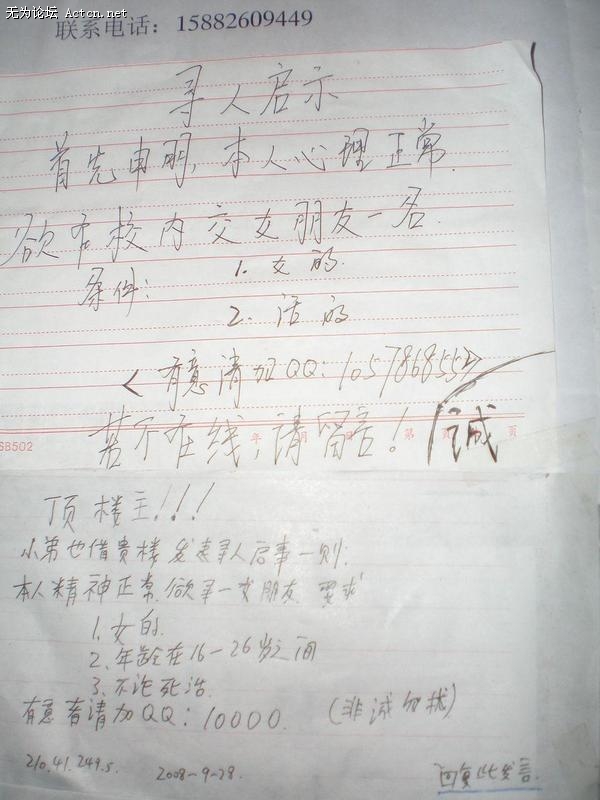 无为论坛 Actcn.net
联系电话：15882609449
寻人启示
首先申明，本人心理正常.
欲在校内交女朋友一名.
条件：1. 女的.
2. 活的
<有意请加QQ：105786855>
若不在线，请留言！诚
68502 年 月 日 第 页
顶楼主！！！
小弟也借贵楼发表寻人启事一则：
本人精神正常.欲寻一女朋友.要求
1. 女的.
2. 年龄在16-26岁之间
3. 不论死活.
有意者请加QQ：10000. (非诚勿扰)
210.41.249.5. 2008-9-28. 回复此发言